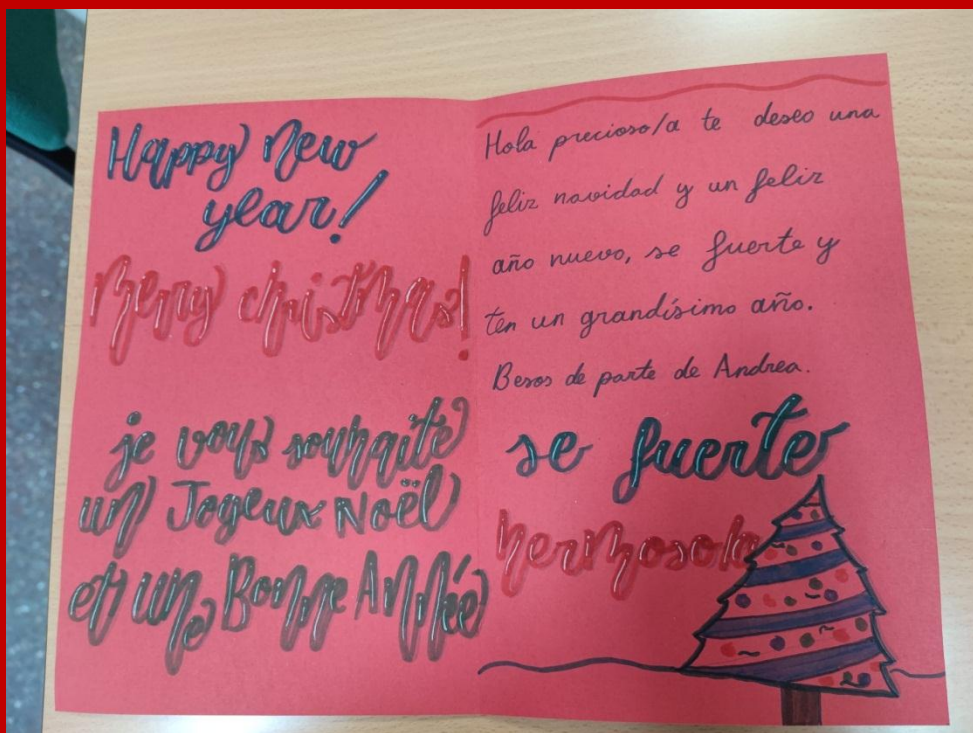 Happy New
year!
Merry christmas!
je vous souhaite
un Joyeux Noël
et une Bonne Année
Hola precioso/a te deseo una
feliz navidad y un feliz
año nuevo, se fuerte y
ten un grandísimo año.
Besos de parte de Andrea.
se fuerte
hermoso/a